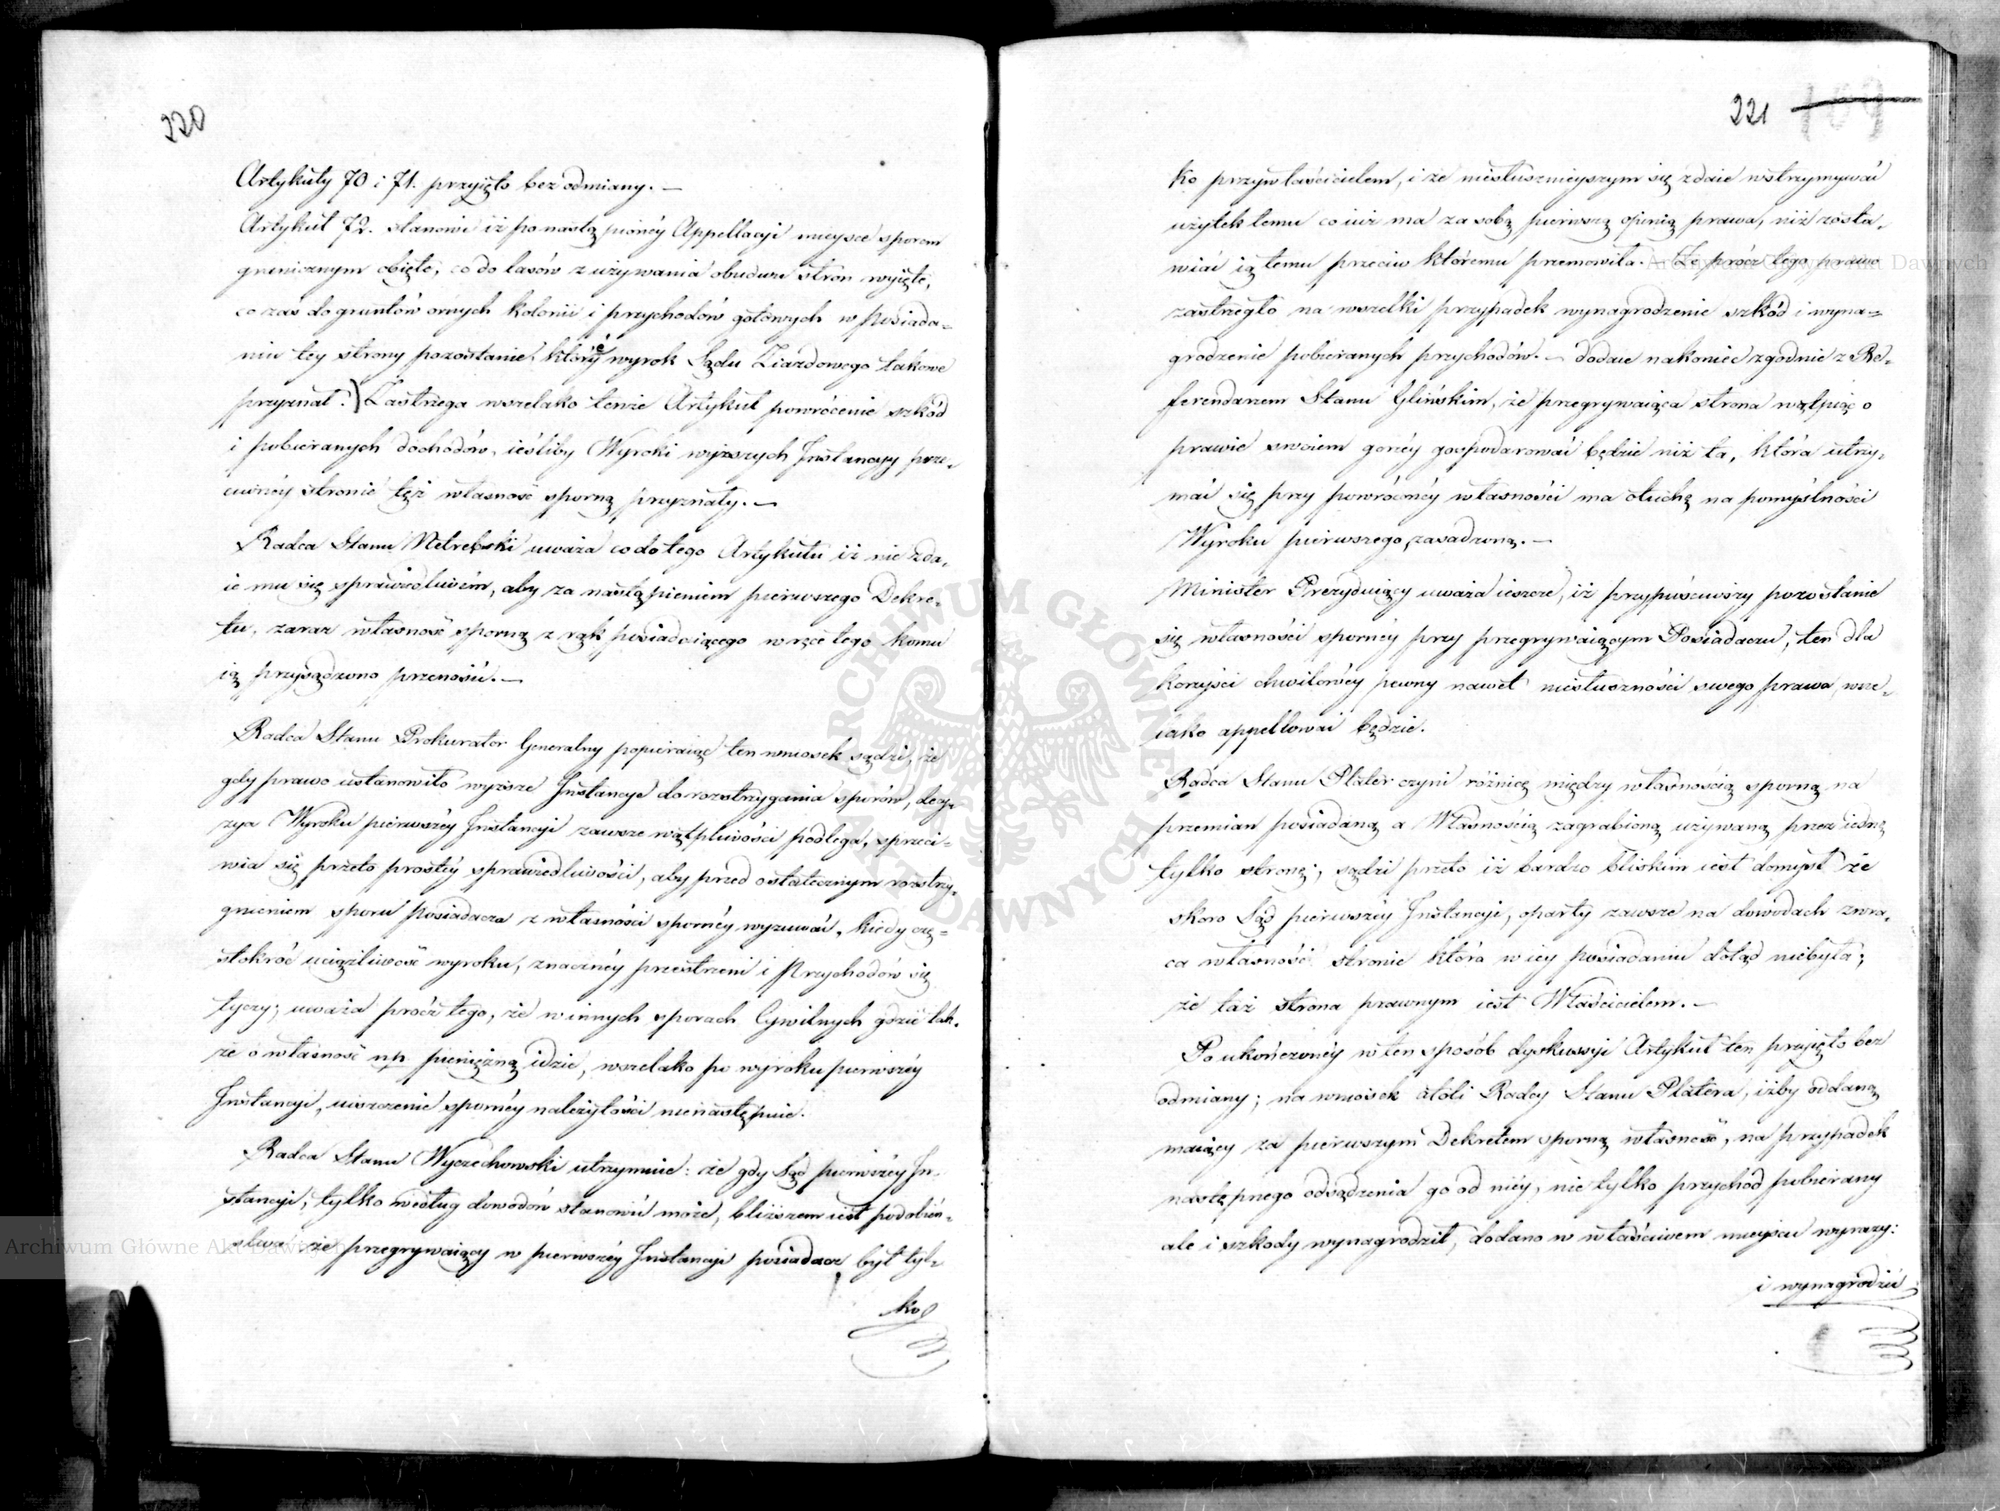 220
Artykuły 70 i 71. przyięto bez odmiany. —
Artykuł 72. stanowi iż po nastąpionéy Appellacyi mieysce sporem
granicznym obięte, co do lasów z używania obudwu stron wyięte,
co zaś do gruntów ornych kolonii i przychodów gotowych w posiada=
niu tey strony pozostanie, któréy wyrok Sądu Ziazdowego takowe
przyznał. Zastrzega wszelako tenże Artykuł powrócenie szkód
i pobieranych dochodów, ieśliby Wyroki wyższych Instancyy prze,
ciwnéy stronie tęż własność sporną przyznały. —
Radca Stanu Netrebski uważa co do tego Artykułu iż nie zda,
ie mu się sprawiedliwém, aby za nastąpieniem pierwszego Dekre,
tu, zaraz własność sporną z rąk posiadaiącego w ręce tego komu
ią przysądzono przenosić. —
Radca Stanu Prokurator Generalny popieraiąc ten wniosek sądzi, że
gdy prawo ustanowiło wyższe Instancye do rozstrzygania sporów, decy,
zya Wyroku pierwszéy Instancyi zawsze wątpliwości podlega, sprzeci=
wia się przeto prostéy sprawiedliwości, aby przed ostatecznym rozstrzy,
gnieniem sporu posiadacza z własności spornéy wyzuwać, kiedy czę=
stokróć uciążliwość wyroku, znacznéy przestrzeni i Przychodów się
tyczy; uważa prócz tego, że w innych sporach Cywilnych gdzie tak,
że o własność np. pieniężną idzie, wszelako po wyroku pierwszéy
Instancyi, uiszczenie spornéy należytości nie następuie.
Radca Stanu Wyczechowski utrzymuie: że gdy Sąd pierwszéy In,
stancyi, tylko według dowodów stanowić może, bliższem iest podobień,
stwa że przegrywaiący w pierwszéy Instancyi posiadacz był tyl=
ko
221 109
ko przywłaścicielem, i że niesłusznieyszym się zdaie wstrzymywać
użytek temu co iuż ma za sobą pierwszą opinią prawa, niż zosta,
wiać ią temu przeciw któremu przemówiła. Że prócz tego prawo
zastrzegło na wszelki przypadek wynagrodzenie szkód i wyna=
grodzenie pobieranych przychodów. — dodaie nakoniec zgodnie z Re,
ferendarzem Stanu Glińskim, że przegrywaiąca strona wątpiąc o
prawie swoiem gorzéy gospodarować będzie niż ta, która utrzy,
mać się przy powróconéy własności ma otuchę na pomyślności
Wyroku pierwszego, zasadzoną. —
Minister Prezyduiący uważa ieszcze, iż przypuściwszy pozostanie
się własności spornéy przy przegrywaiącym Posiadaczu, ten dla
korzyści chwilowéy pewny nawet niesłuszności swego prawa wsze,
lako appellować będzie.
Radca Stanu Plater czyni różnicę między własnością sporną na
przemian posiadaną a Własnością zagrabioną używaną przez iedną
tylko stronę; sądzi przeto iż bardzo bliskim iest domysł że
skoro Sąd pierwszéy Instancyi, oparty zawsze na dowodach zwra,
ca własność stronie która w iéy posiadaniu dotąd niebyła;
że taż strona prawnym iest Właścicielem. —
Po ukończonéy w ten sposób dyskussyi Artykuł ten przyięto bez
odmiany; na wniosek atoli Radcy Stanu Platera, iżby oddaną
maiący za pierwszym Dekretem sporną własność, na przypadek
następnego odsądzenia go od niéy, nie tylko przychód pobierany
ale i szkody wynagrodził, dodano w właściwem mieyscu wyrazy:
i wynagrodzić